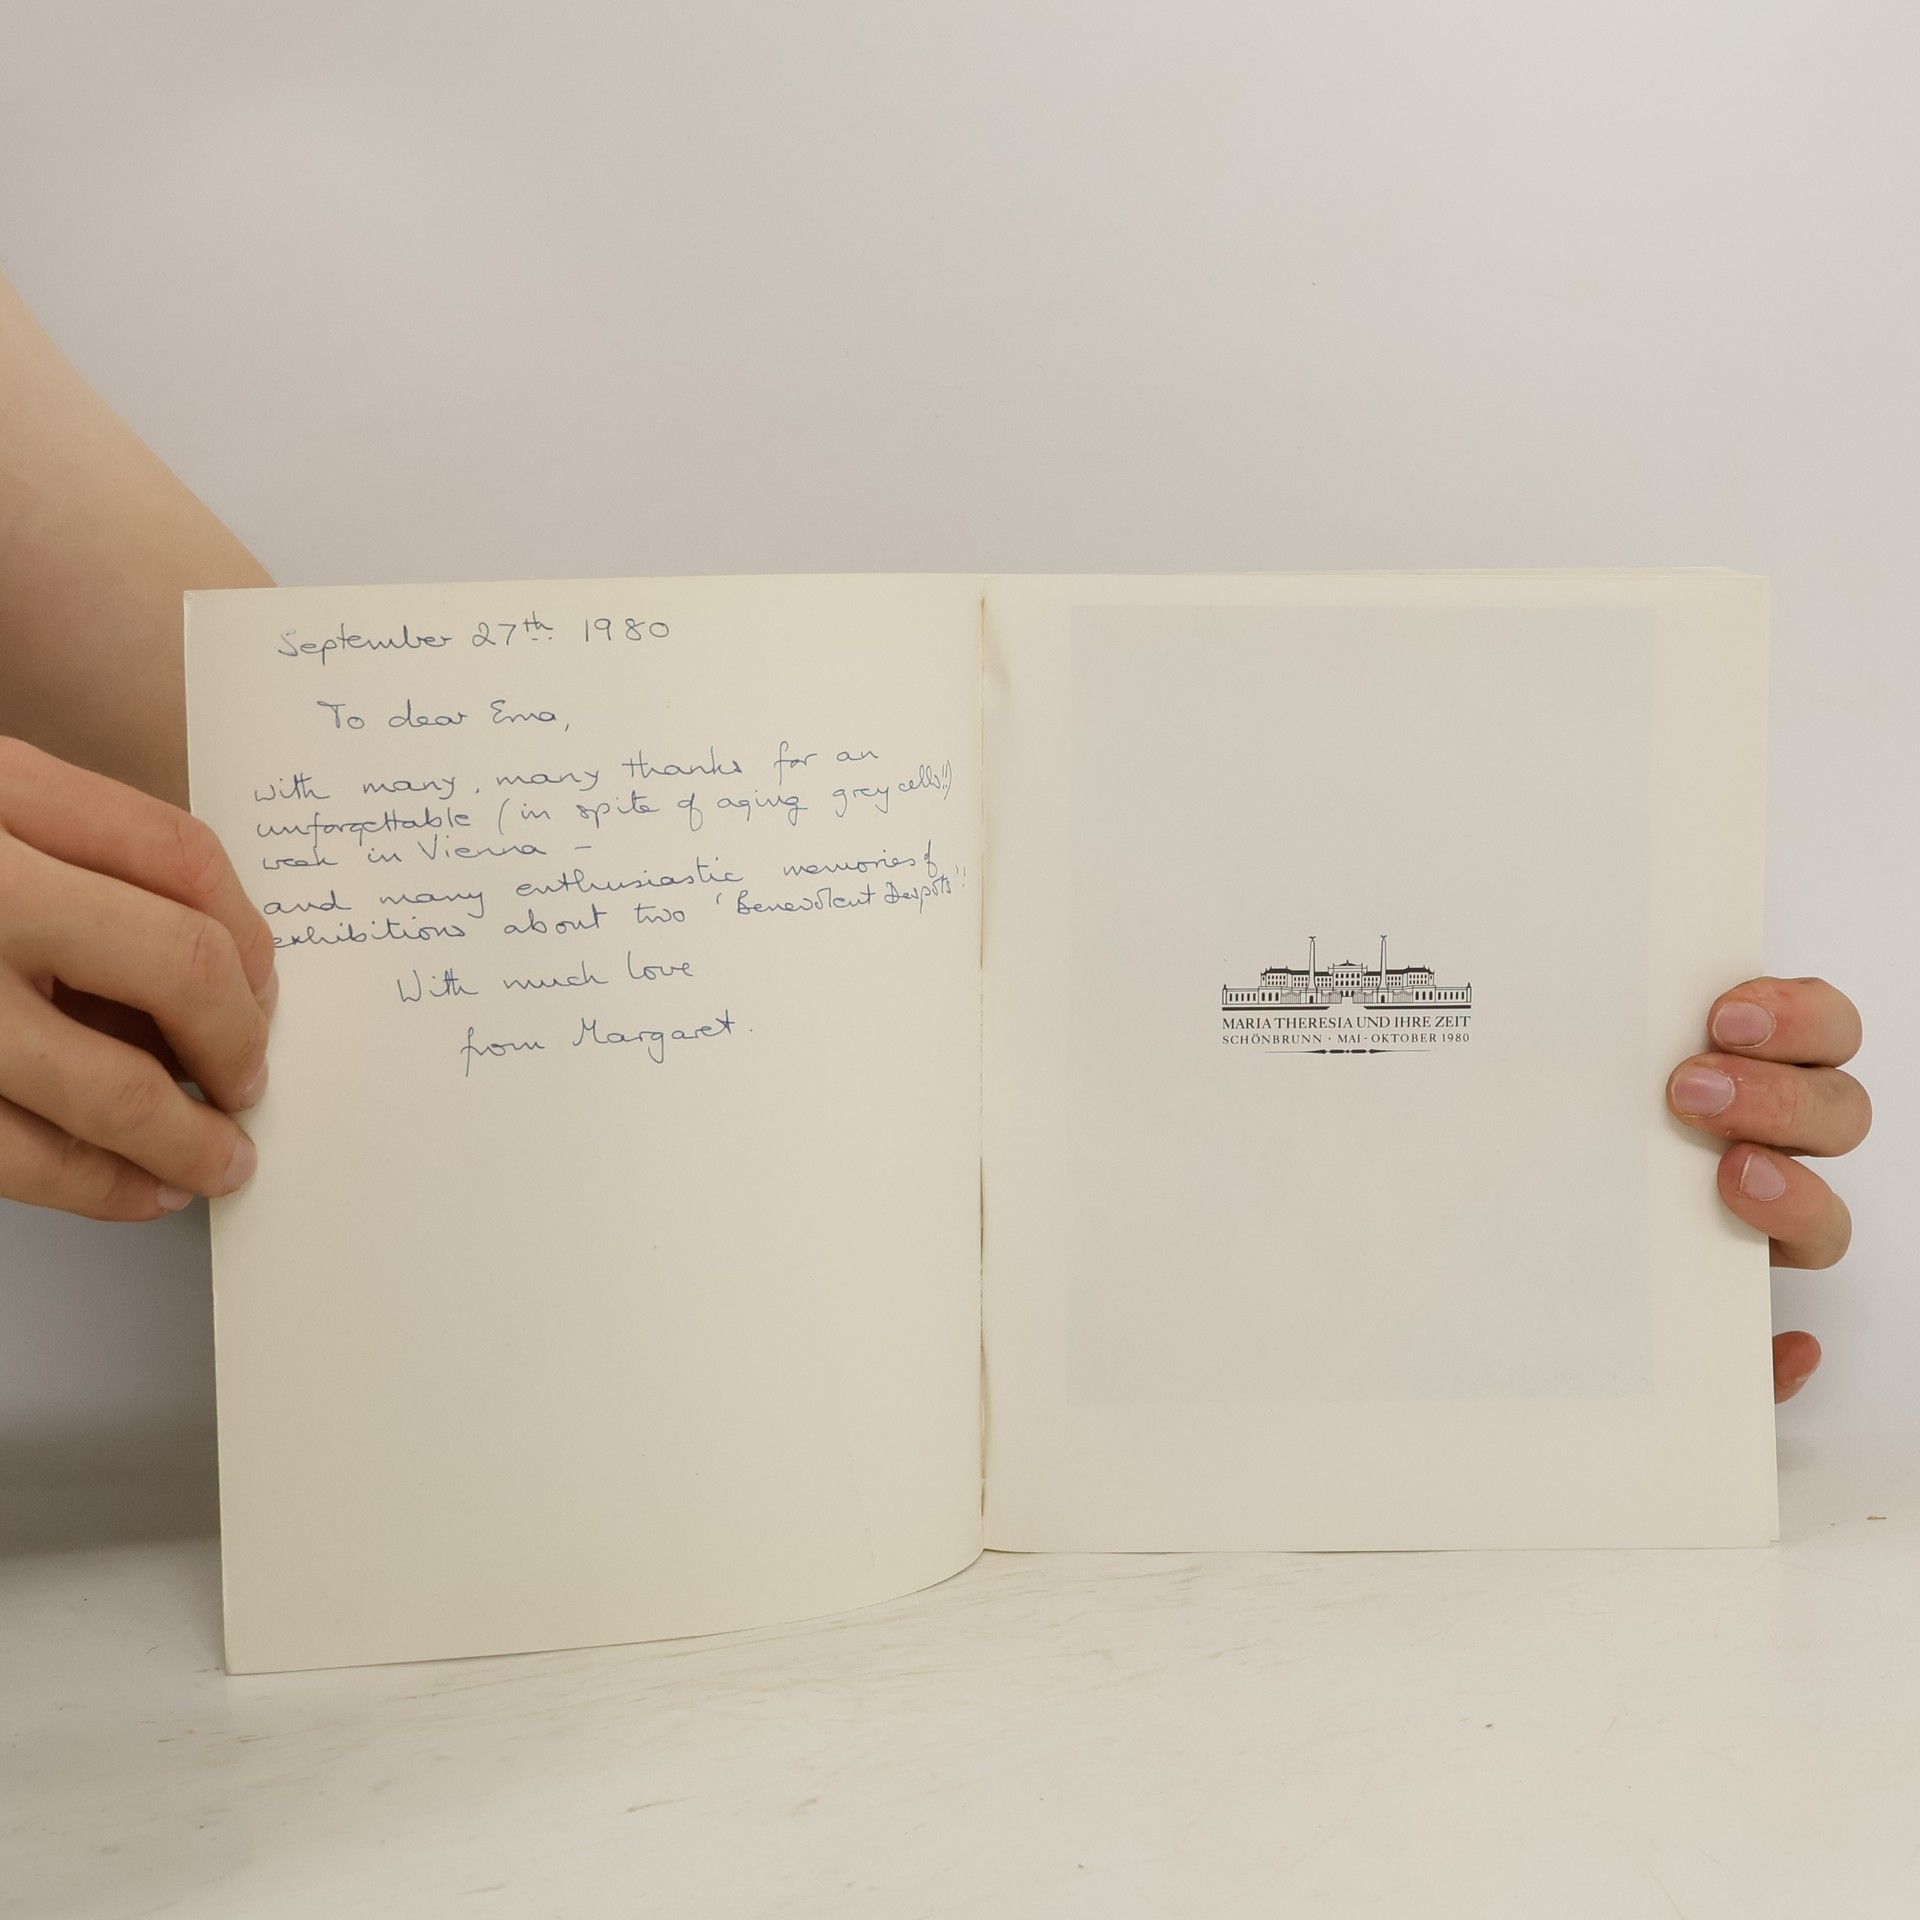 September 27th 1980
To dear Erna,
with many, many thanks for an
unforgettable (in spite of aging grey cells!!)
week in Vienna –
and many enthusiastic memories of
exhibitions about two 'Benevolent Despots'!
With much love
from Margaret.
MARIA THERESIA UND IHRE ZEIT
SCHÖNBRUNN · MAI - OKTOBER 1980